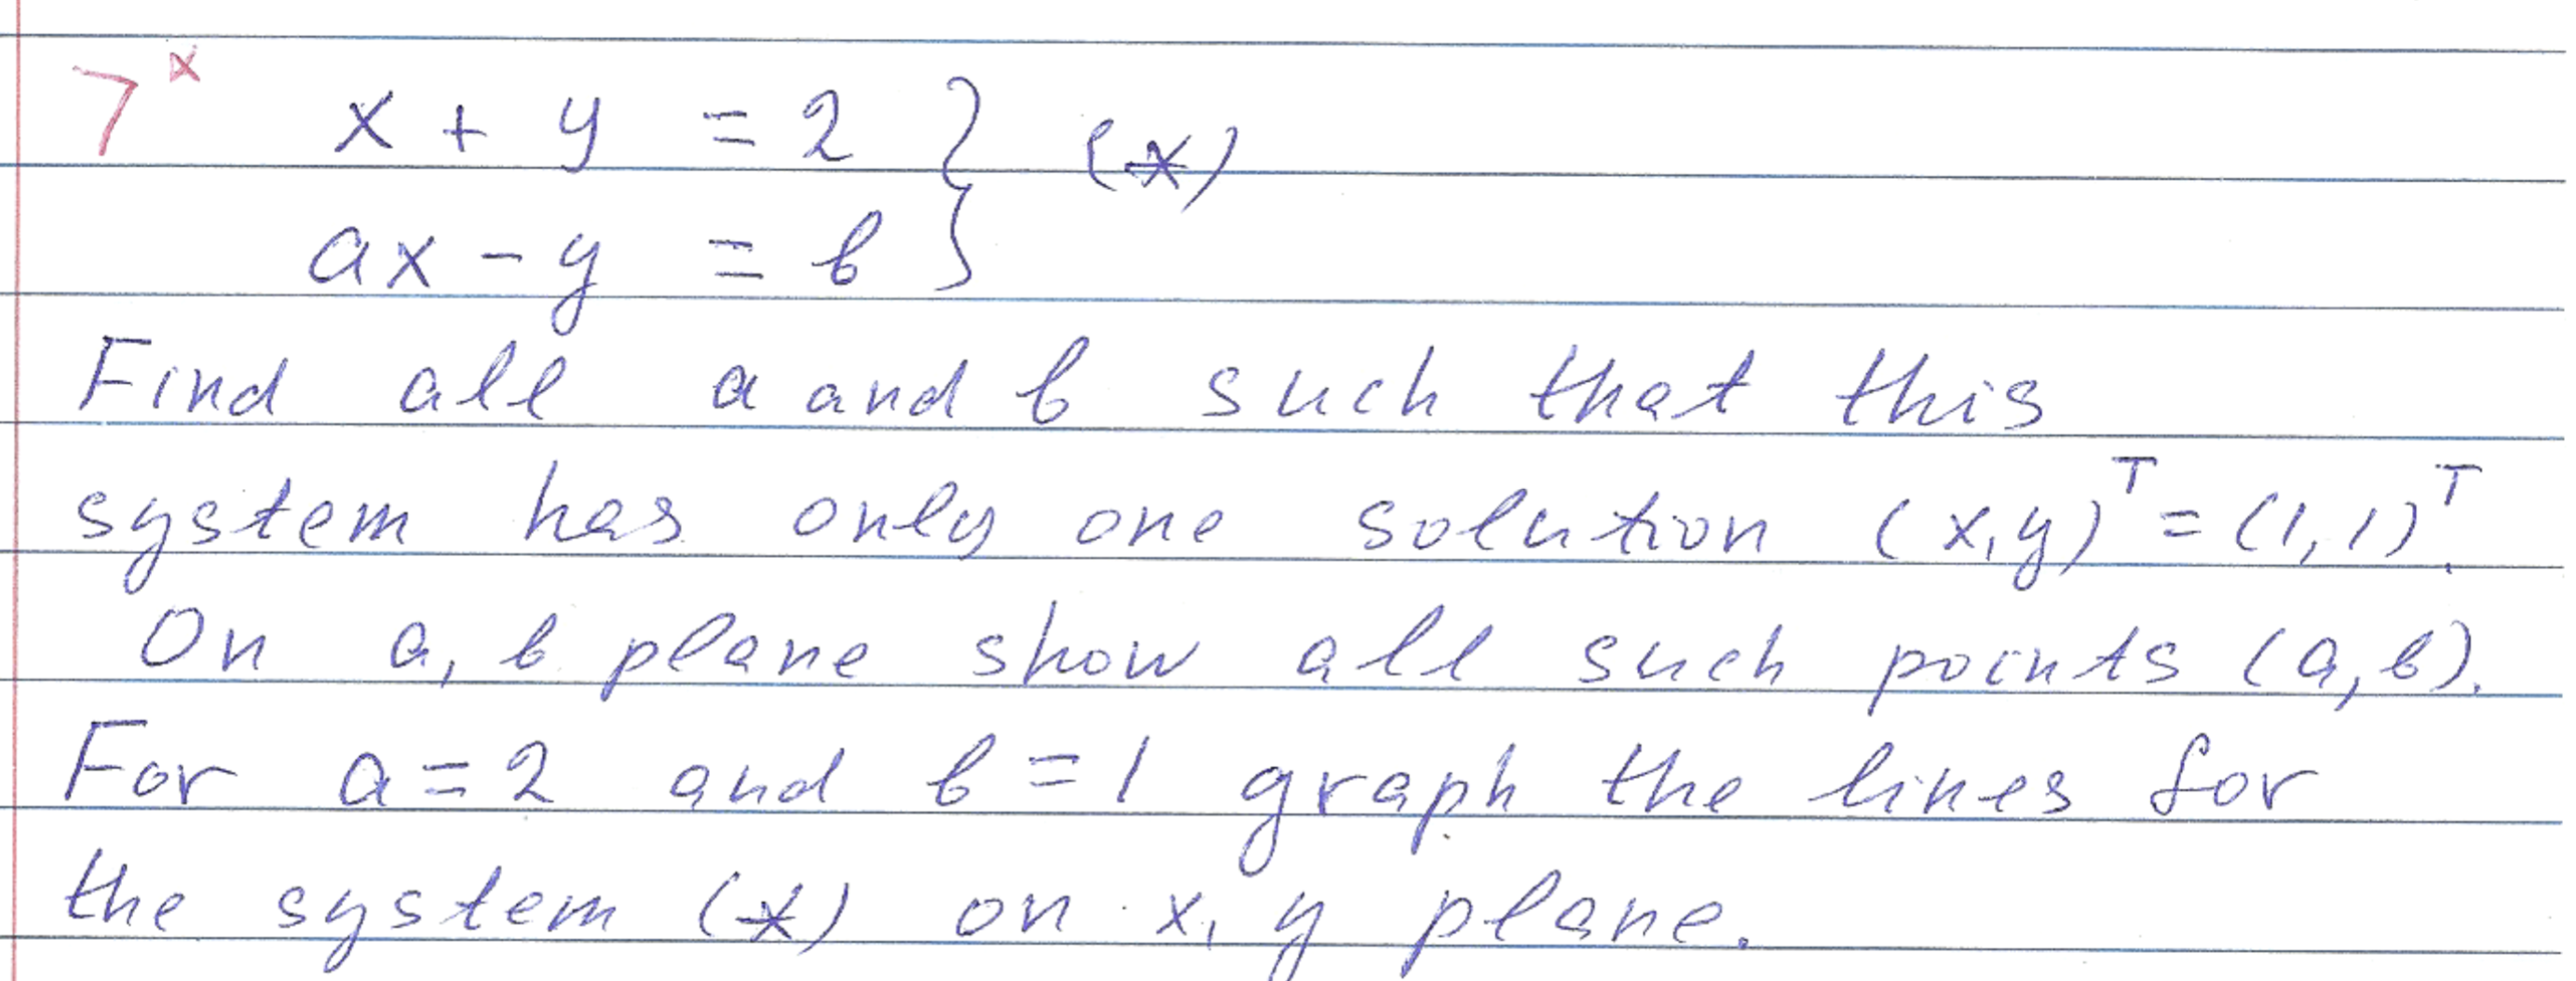 7*
x + y = 2 } (*)
ax - y = b
Find all a and b such that this
system has only one solution (x,y)ᵀ = (1,1)ᵀ.
On a, b plane show all such points (a,b).
For a=2 and b=1 graph the lines for
the system (*) on x, y plane.